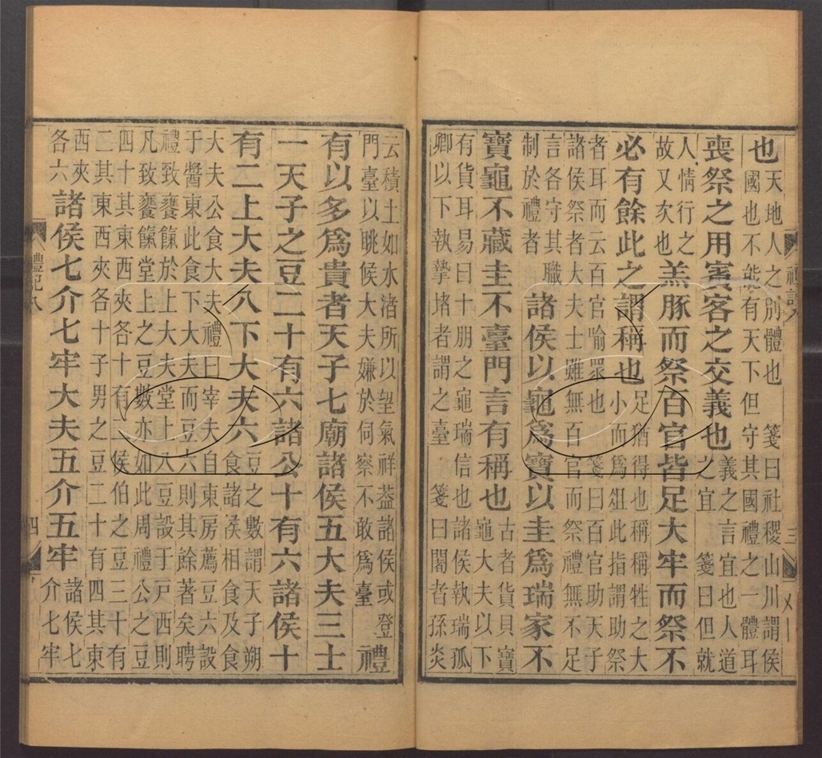 也天地人之別體也 箋曰社稷山川謂侯
國也不能有天下但守其國禮之一體耳
喪祭之用賓客之交義也義之言宜也人道
之宜 箋曰但就
人情行之
故又次也羔豚而祭百官皆足大牢而祭不
必有餘此之謂稱也足猶得也稱稱牲之大
小而爲俎此指謂助祭
者耳而云百官喻眾也 箋曰百官助天子
諸侯祭者大夫士雖無百官而祭禮無不足
言各守其職
制於禮者諸侯以龜爲寶以圭爲瑞家不
寶龜不藏圭不臺門言有稱也古者貨貝寶
龜大夫以下
有貨耳易曰十朋之龜瑞信也諸侯執瑞孤
卿以下執摯堵者謂之臺 箋曰闍者孫炎
云積土如水渚所以望氣祥葢諸侯或登
門臺以眺侯大夫嫌於伺察不敢爲臺禮
有以多爲貴者天子七廟諸侯五大夫三士
一天子之豆二十有六諸公十有六諸侯十
有二上大夫八下大夫六豆之數謂天子朔
食諸侯相食及食
大夫公食大夫禮曰宰夫自東房薦豆六設
于醬東此食下大夫而豆六則其餘著矣聘
禮致饔餼於上大夫堂上八豆設于戶西則
凡致饔餼堂上之豆數亦如此周禮公之豆
四十其東西夾各十有二侯伯之豆三十有
二其東西夾各十子男之豆二十有四其東
西夾
各六諸侯七介七牢大夫五介五牢諸侯七
介七牢
禮記八
四